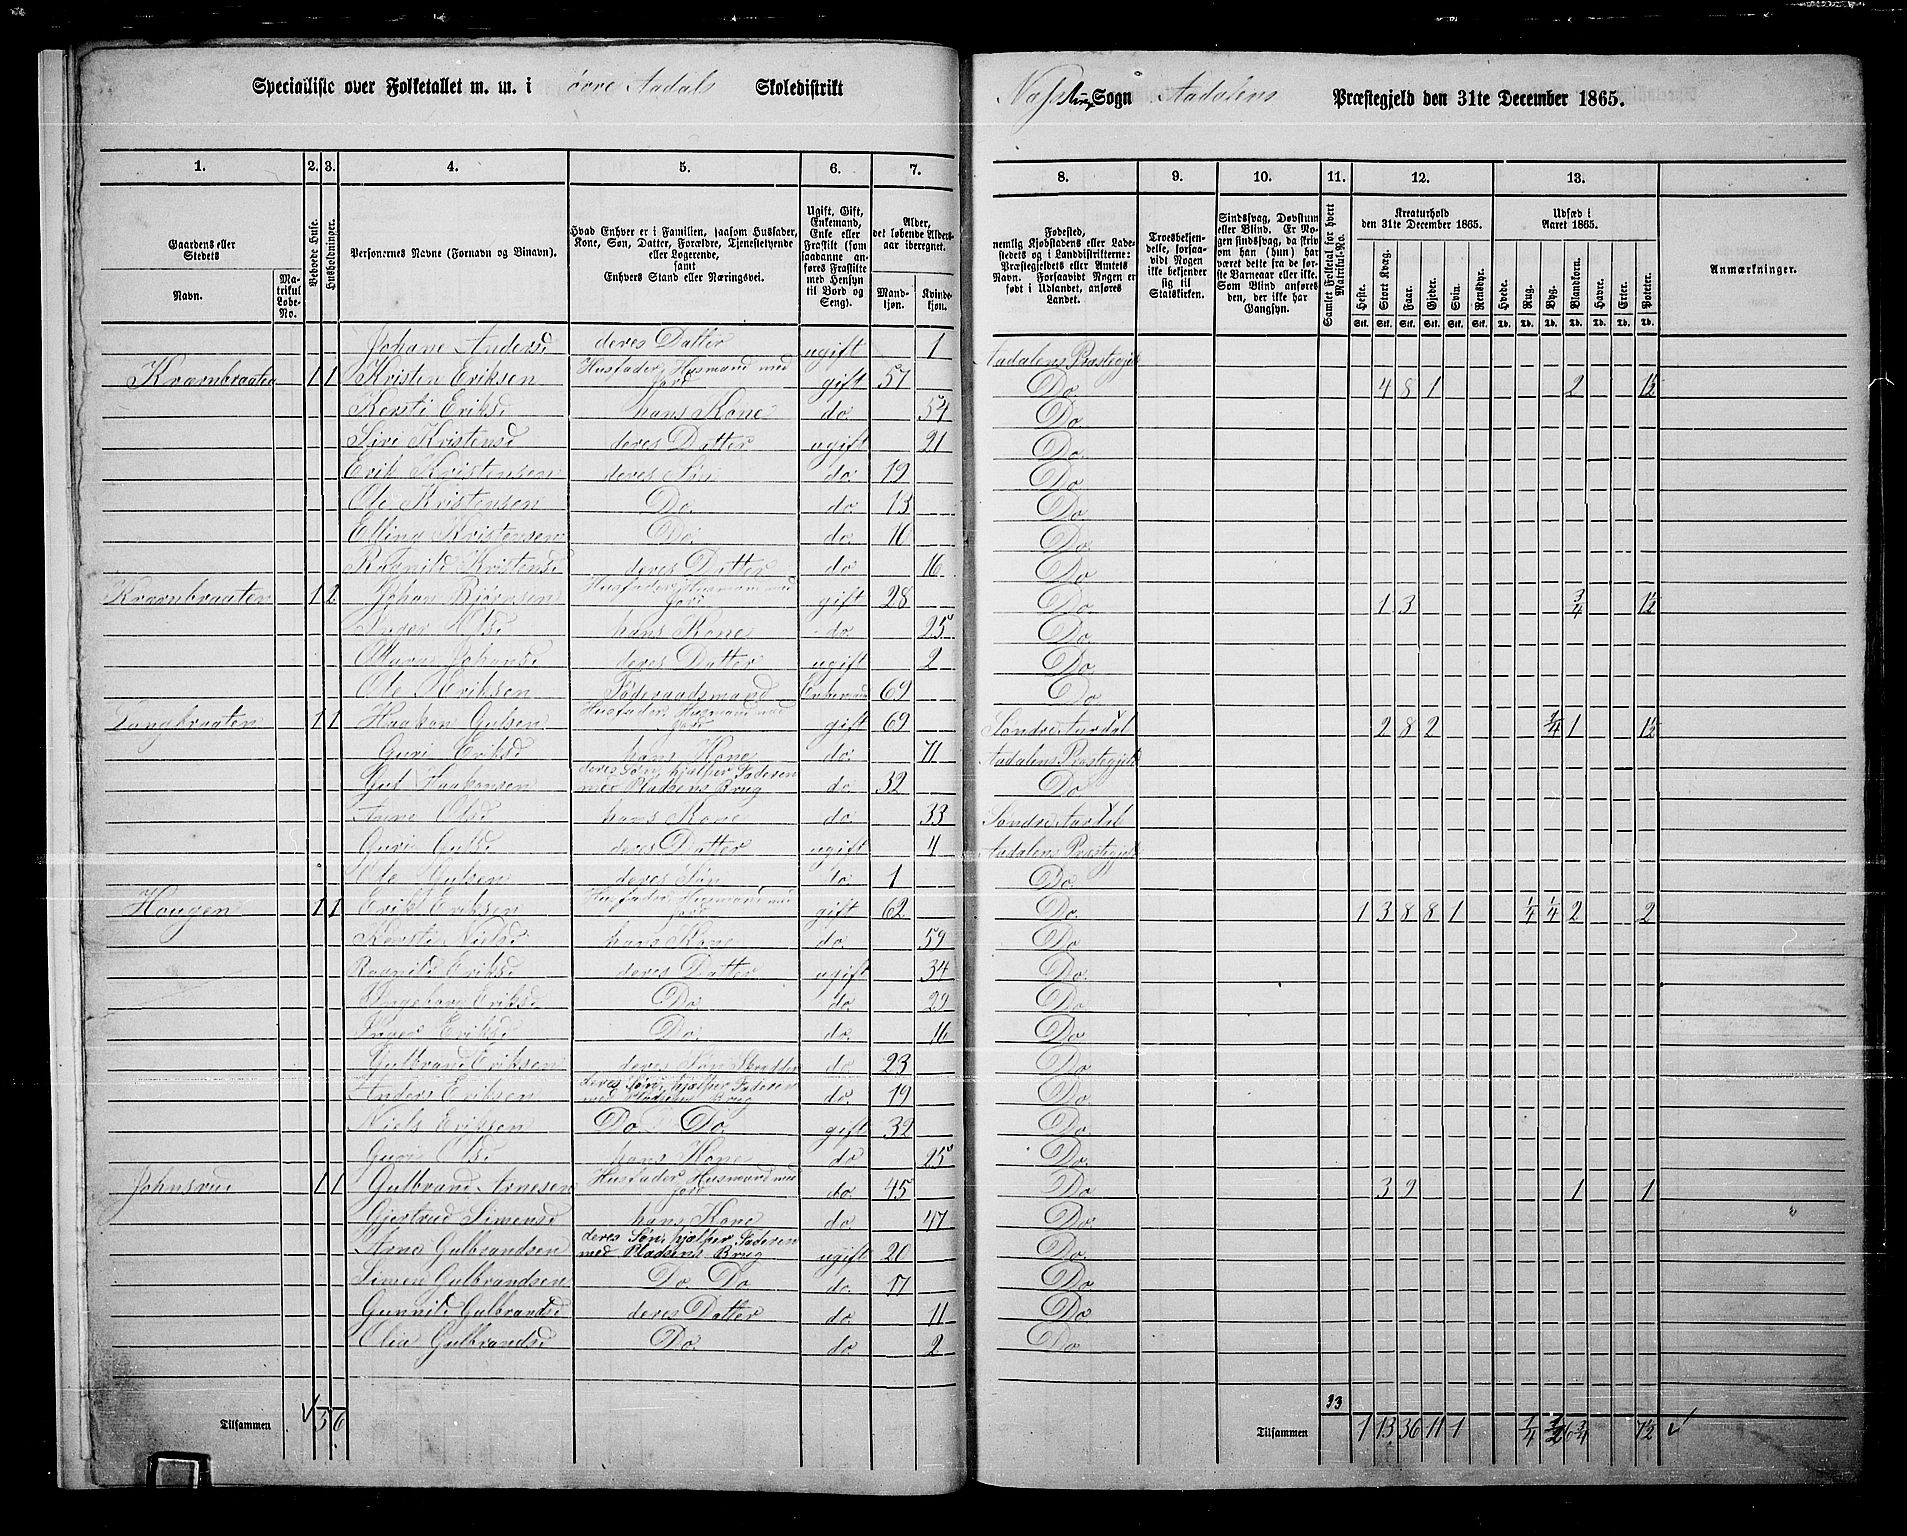 Specialliste over Folketallet m. m. i øvre Aadals Skoledistrikt
Sogn Aadalens Præstegjeld den 31te December 1865.
1. 2. 3. 4. 5. 6. 7.
8. 9. 10. 11. 12. 13.
Gaardens eller Stedets
Navn.
Matrikul Løbe-No.
Beboede Huse.
Husholdninger.
Personernes Navne (Fornavn og Binavn).
Hvad Enhver er i Familien, saasom Husfader, Kone, Søn, Datter, Forældre, Tjenestetyende eller Logerende, samt Enhvers Stand eller Næringsvei.
Ugift, Gift, Enkemand, Enke eller Fraskilt (som saadanne anføres Fraskilte med Hensyn til Bord og Seng).
Alder, det løbende Aldersaar iberegnet.
Mandkjøn. Kvindekjøn.
Fødested, nemlig Kjøbstadens eller Ladestedets og i Landdistrikterne: Præstegjeldets eller Amtets Navn. Forsaavidt Nogen er født i Udlandet, anføres Landet.
Troesbekjendelse, forsaavidt Nogen ikke bekjender sig til Statskirken.
Sindssvag, Døvstum eller Blind. Er Nogen sindssvag, da skriv om han (hun) har været dette fra de første Barneaar eller ikke. Som Blind anføres den, der ikke har Gangsyn.
Samlet Folketal for hvert Matrikul-No.
Kreaturhold den 31te December 1865.
Heste. Stort Kvæg. Faar. Gjeder. Svin. Rensdyr.
Udsæd i Aaret 1865.
Hvede. Rug. Byg. Blandkorn. Havre. Erter. Poteter.
Stk. Stk. Stk. Stk. Stk. Stk. Td. Td. Td. Td. Td. Td. Td.
Anmærkninger.
Johane Andersd deres Datter ugift 1 Aadalens Præstegjeld
Kværnbraaten 1 1 Kristen Eriksen Husfader, Husmand med Jord gift 57 Do 4 8 1 2 1½
Kersti Eriksd hans Kone do. 54 Do
Siri Kristensd deres Datter ugift 21 Do
Erik Kristensen deres Søn do. 19 Do
Ole Kristensen Do. do. 13 Do
Elling Kristensen Do. do. 10 Do.
Ragnild Kristensd deres Datter do 16 Do
Kværnbraaten 1 2 Johan Bjørnsen Husfader, Husmand med Jord gift 28 Do 1 3 ¾ 1½
Olsd hans Kone do. 25 Do
Johansd deres Datter ugift 2 Do
Ole Eriksen Føderaadsmand Enkemand 69 Do
Langbraaten 1 1 Haakon Gulsen Husfader, Husmand med Jord gift 69 Søndre Aurdal 2 8 2 ¼ 1 1½
Guri Eriksd hans Kone do. 71 Aadalens Præstegjeld
Gul Haakonsen deres Søn, hjælper Faderen med Pladsens Brug do. 32 Do
Anne Olsd hans Kone do. 33 Søndre Aurdal
Guri Gulsd deres Datter ugift 4 Aadalens Præstegjeld
Ole Gulsen deres Søn do. 1 Do.
Hougen 1 1 Erik Eriksen Husfader, Husmand med Jord gift 62 Do. 1 3 8 8 1 ¼ ¼ 2 2
Kersti Nielsd hans Kone do. 59 Do
Ragnild Eriksd deres Datter ugift 34 Do.
Ingeborg Eriksd Do. do. 29 Do
Eriksd Do. do. 16 Do
Gulbrand Eriksen deres Søn, Skrædder do 23 Do
Anders Eriksen deres Søn, hjælper Faderen med Pladsens Brug do. 19 Do
Niels Eriksen Do Do. gift 32 Do.
Guri Olsd hans Kone do 25 Do.
Johnsrud 1 1 Gulbrand Arnesen Husfader, Husmand med Jord do. 45 Do 3 9 1 1
Gjertrud Simensd hans Kone do 47 Do.
Arne Gulbrandsen deres Søn, hjælper Faderen med Pladsens Brug ugift 20 Do.
Simen Gulbrandsen Do. Do do. 17 Do.
Gunnild Gulbrandsd deres Datter do 11 Do
Olea Gulbrandsd Do. do. 2 Do
Tilsammen 5 6
33
Tilsammen 1 13 36 11 1 ¼ ½ 6¾ 7½